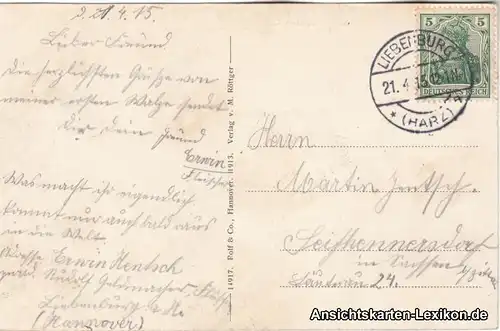 d. 21.4.15.
Lieber Freund
Die herzlichsten Grüße von
meiner ersten Walze sendet
Dir Dein Freund
Erwin
Was macht ihr eigendlich
kommt nur auch bald raus
in die Welt
Adresse Erwin Hentsch
Rudolf
Liebenburg a. H.
(Hannover)
14917. Rolf & Co., Hannover. 1913. Verlag v. M. Röttger.
5 5
DEUTSCHES REICH
LIEBENBURG
21.4.15.12-1N.
* (HARZ)
Herrn
Martin Jentsch.
Seifhennersdorf
in Sachsen
24.
Ansichtskarten-Lexikon.de